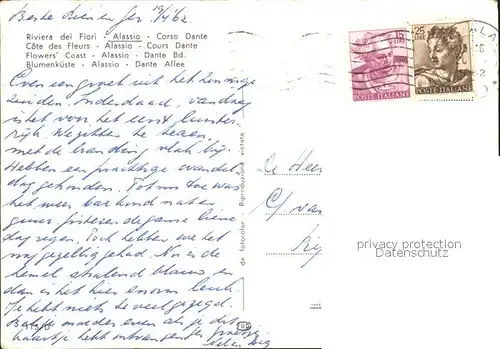 Beste Rien en Jer 19/4 '62.
Riviera dei Fiori - Alassio - Corso Dante
Côte des Fleurs - Alassio - Cours Dante
Flowers' Coast - Alassio - Dante Bd.
Blumenküste - Alassio - Dante Allee
Even een groet uit het zonnige
zuiden. Inderdaad, vandaag
is het voor het eerst
rijk. We zitten te
met de branding vlak bij.
Hebben een prachtige wandel
dag gehouden. Tot nu toe was
het weer bar koud nat en
guur, gisteren de ganse
dag regen. Toch hebben we het
nog gezellig gehad. Nu is de
hemel stralend blauw en
dan is het hier enorm leuk.
Je hebt niets te veel gezegd.
even als je dit
kaartje hebt ontvangen
de fotocolor - Riproduzione vietata
15
LIRE
POSTE ITALIANE
25
LIRE
POSTE ITALIANE
De Heer
C/ van
Rij
privacy protection
Datenschutz